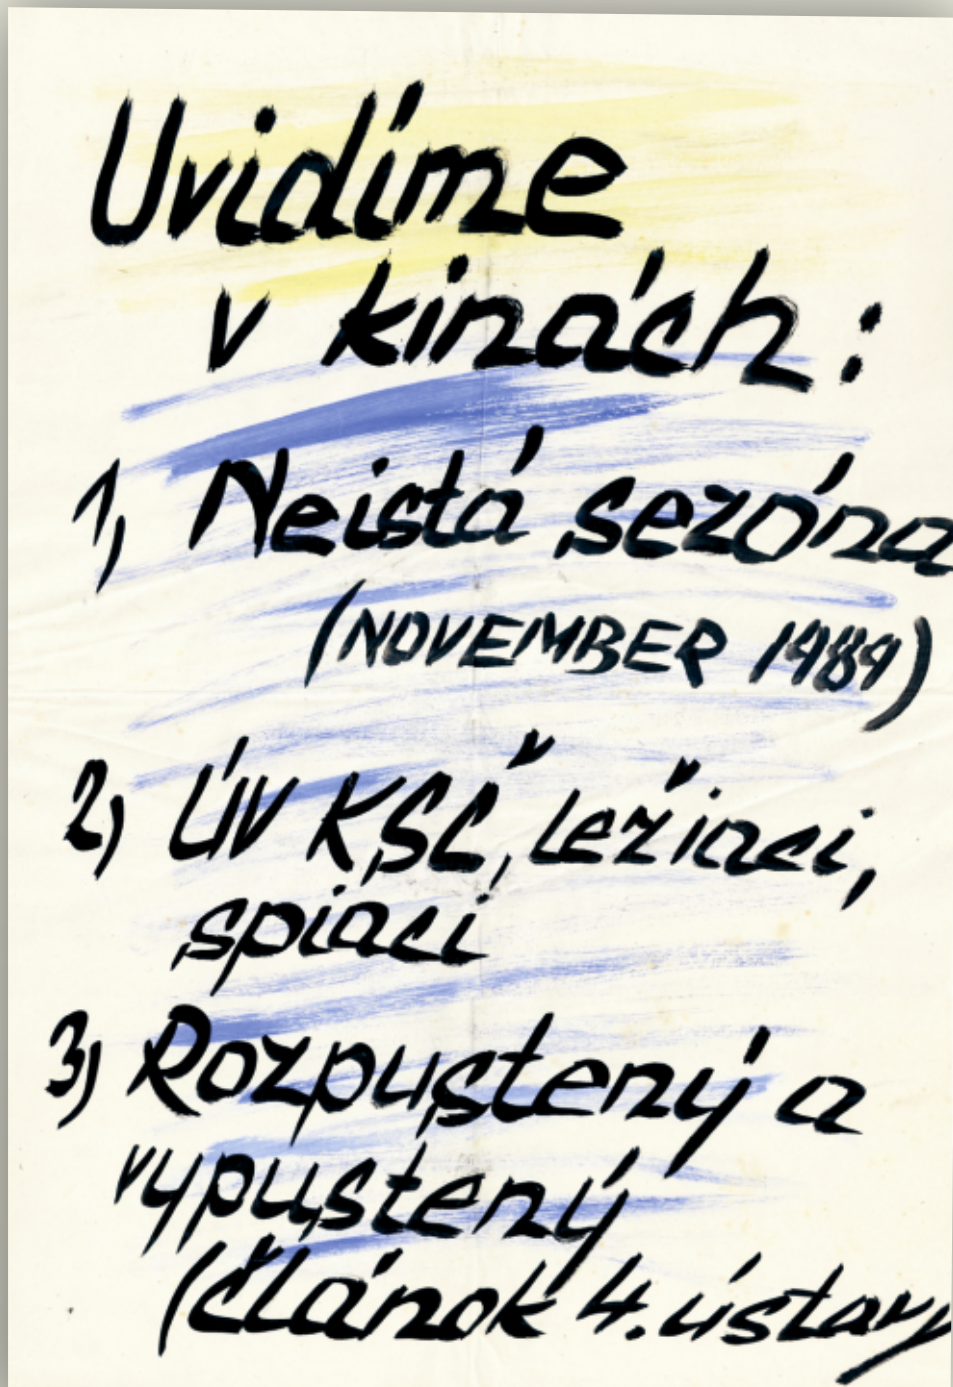 Uvidíme
v kinách:
1, Neistá sezóna
(NOVEMBER 1989)
2, ÚV KSČ, ležiaci,
spiaci
3, Rozpustený a
vypustený
(článok 4. ústavy